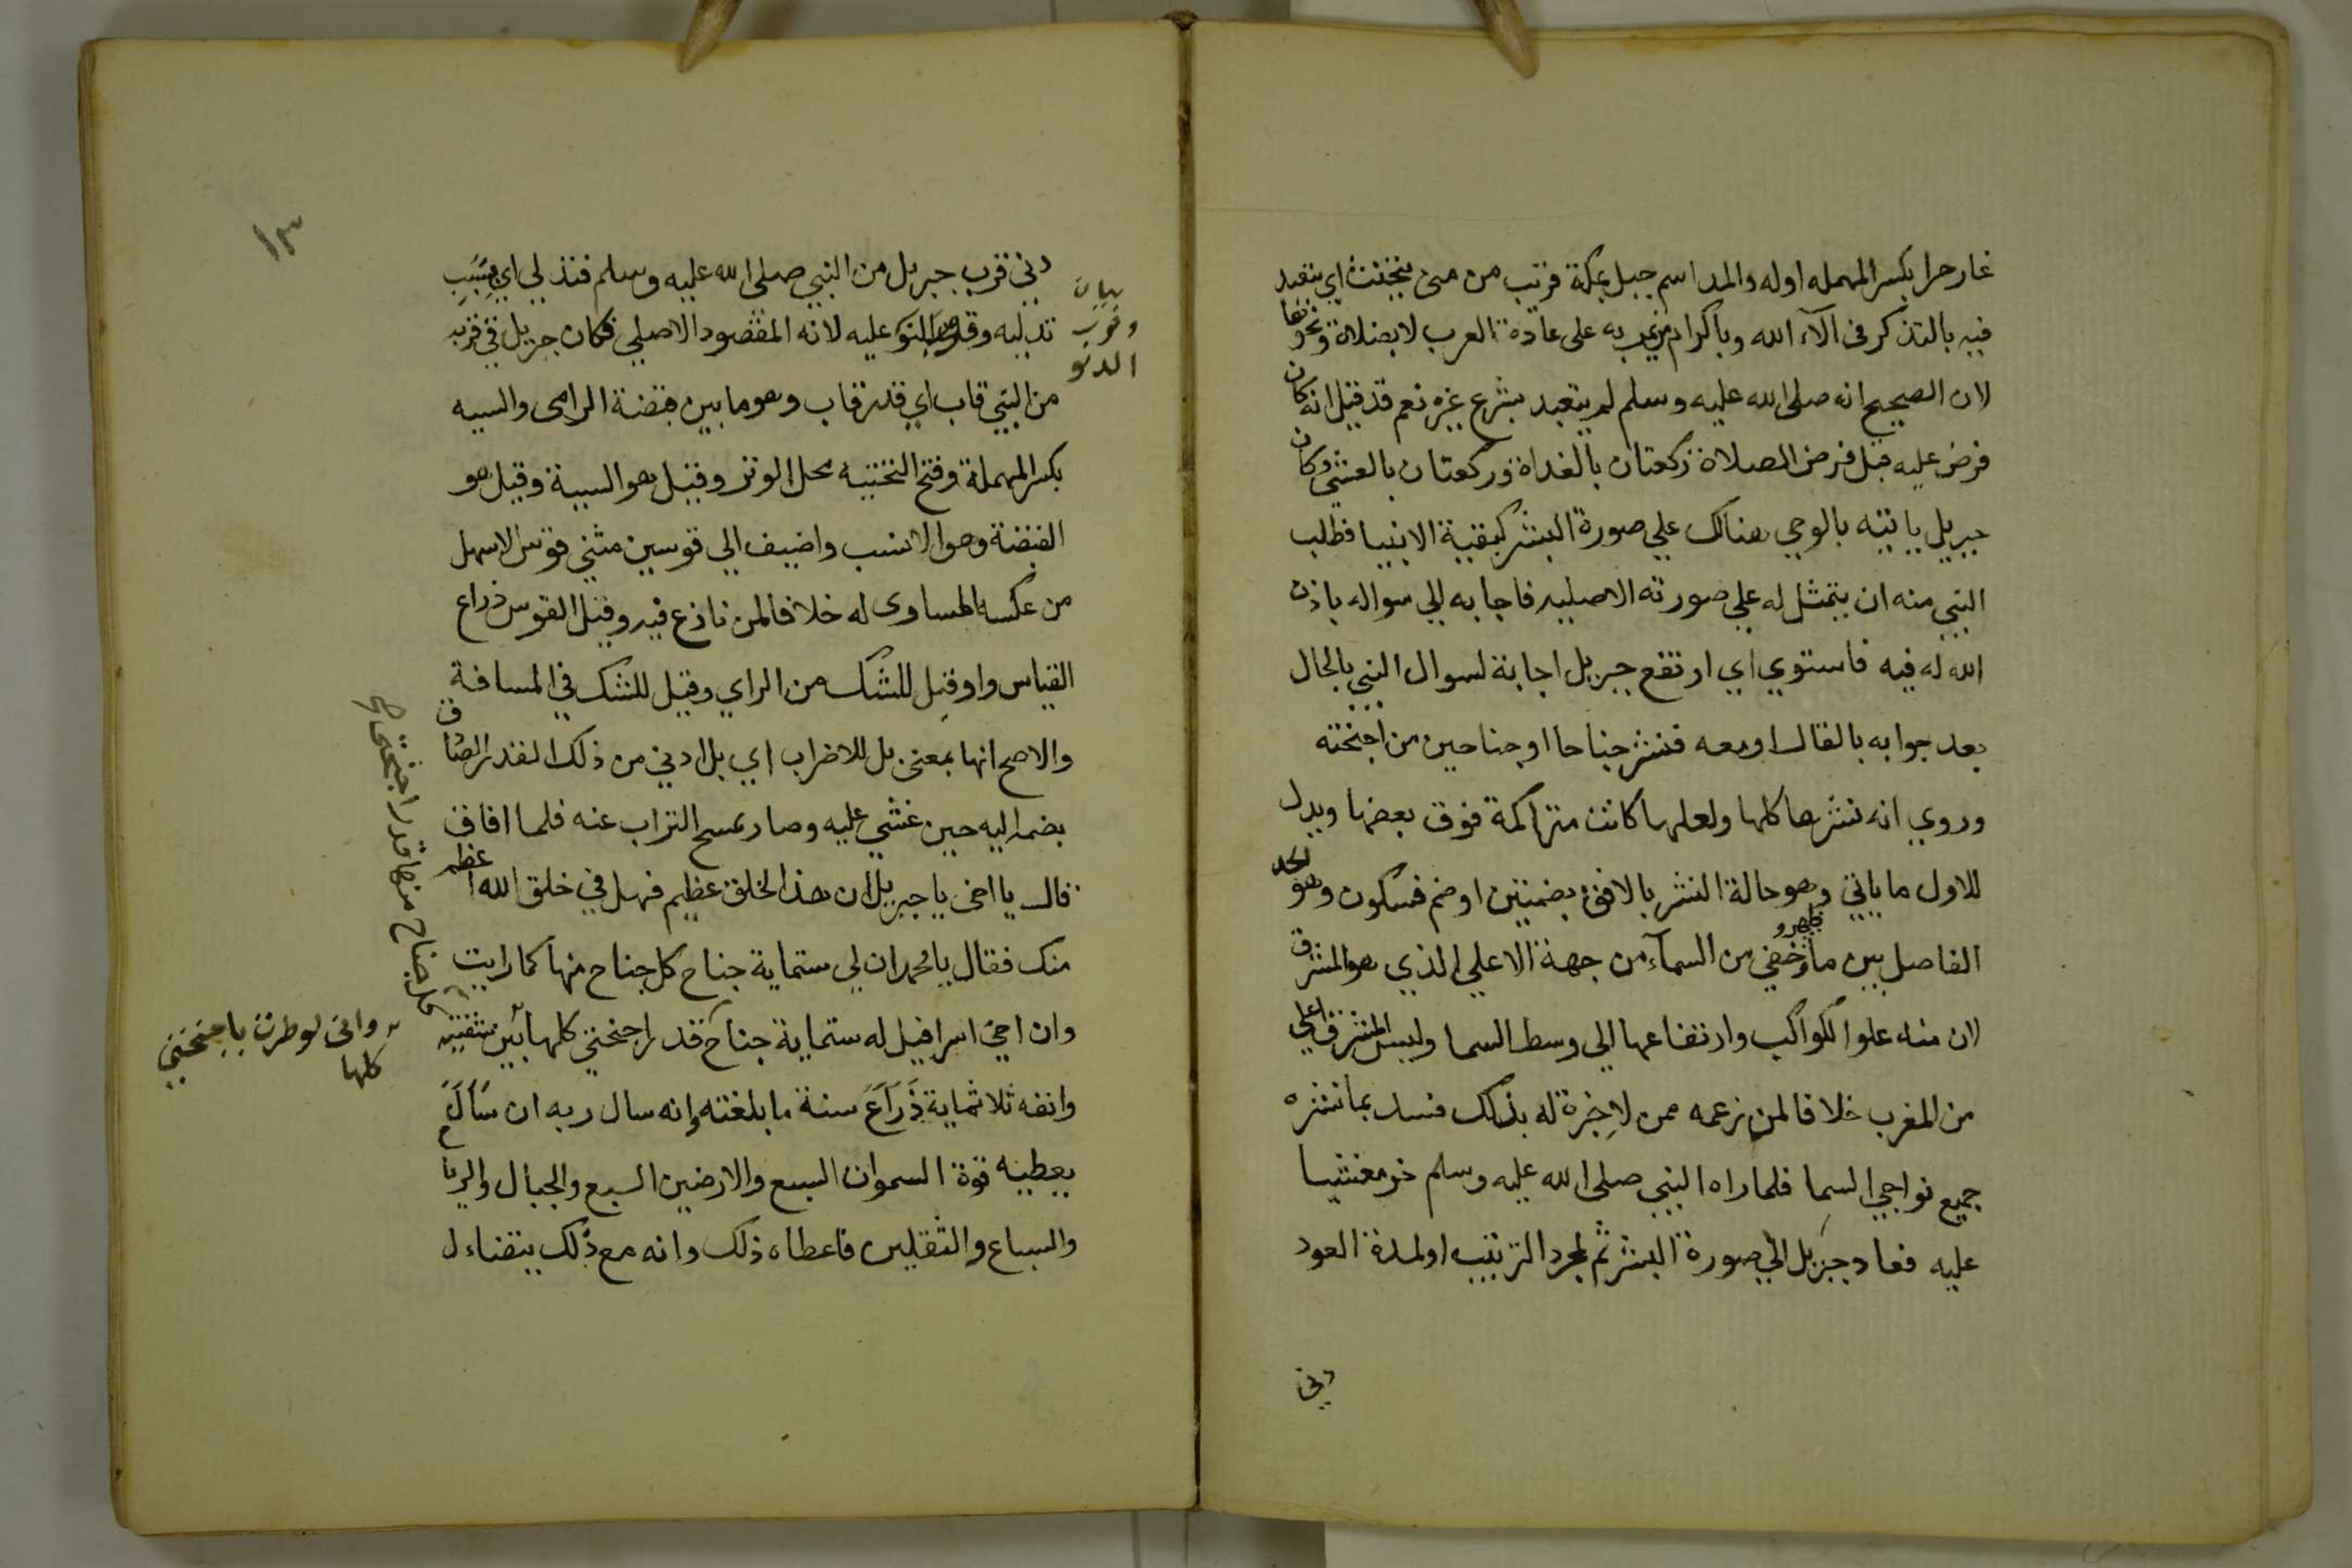 غار حرا بكسر المهمله اوله والمد اسم جبل بمكة قريب من منى يتحنث اي يتعبد
فيه بالتذكر في الآء الله وباكرام من يمر به على عادة العرب لا بصلاة ونحوها
لان الصحيح انه صلى الله عليه وسلم لم يتعبد بشرع غيره نعم قد قيل انه كان
فرض عليه قبل فرض الصلاة ركعتان بالغداة وركعتان بالعشي وكان
جبريل ياتيه بالوحي هنالك علي صورة البشر كبقية الانبيا فطلب
النبي منه ان يتمثل له علي صورته الاصليه فاجابه الي سواله باذن
الله له فيه فاستوي اي ارتفع جبريل اجابة لسوال النبي بالحال
بعد جوابه بالقال او معه فنشر جناحا او جناحين من اجنحته
وروي انه نشرها كلها ولعلها كانت متراكمة فوق بعضها ويدل
للاول ما ياتي وهو حالة النشر بالافق بضمتين او ضم فسكون وهو الحد
الفاصل بين ما ظهر وخفي من السمآء من جهة الاعلي الذي هو المشرق
لان منه علو الكواكب وارتفاعها الي وسط السما وليس المشرق اعلي
من المغرب خلافا لمن زعمه ممن لا خبرة له بذلك فسد بما نشره
جميع نواحي السما فلما راه النبي صلى الله عليه وسلم خر مغشيا
عليه فعاد جبريل الي صورة البشر ثم لمجرد الترتيب او لمدة العود
دني
١٣
دني قرب جبريل من النبي صلى الله عليه وسلم فتدلي اي بسبب
تدليه وقدم الدنو عليه لانه المقصود الاصلي فكان جبريل في قربه
بيان
وقرب
الدنو
من النبي قاب اي قدر قاب وهو ما بين قبضة الرامى والسيه
بكسر المهملة وفتح التحتيه محل الوتر وقيل هو السية وقيل هو
القبضة وهو الانسب واضيف الي قوسين مثني قوس لاسهل
من عكسه المساوى له خلافا لمن نازع فيه وقيل القوس ذراع
القياس واو قيل للشك من الراي وقيل للشك في المسافة
والاصح انها بمعنى بل للاضراب اي بل ادني من ذلك القدر فصار
يضمه اليه حين غشي عليه وصار يمسح التراب عنه فلما افاق
قال يا اخى يا جبريل ان هذا لخلق عظيم فهل في خلق الله اعظم
منك فقال يا محمد ان لي ستماية جناح كل جناح منها كما رايت
وان اخي اسرافيل له ستماية جناح قدر اجنحتي كلها بين شفتيه
كل جناح منها قدر اجنحتي
وانى لو طرت باجنحتي
كلها
وانفه ثلاثماية ذراع سنة ما بلغته وانه سال ربه ان
يعطيه قوة السموات السبع والارضين السبع والجبال والرياح
والسباع والثقلين فاعطاه ذلك وانه مع ذلك يتضاءل